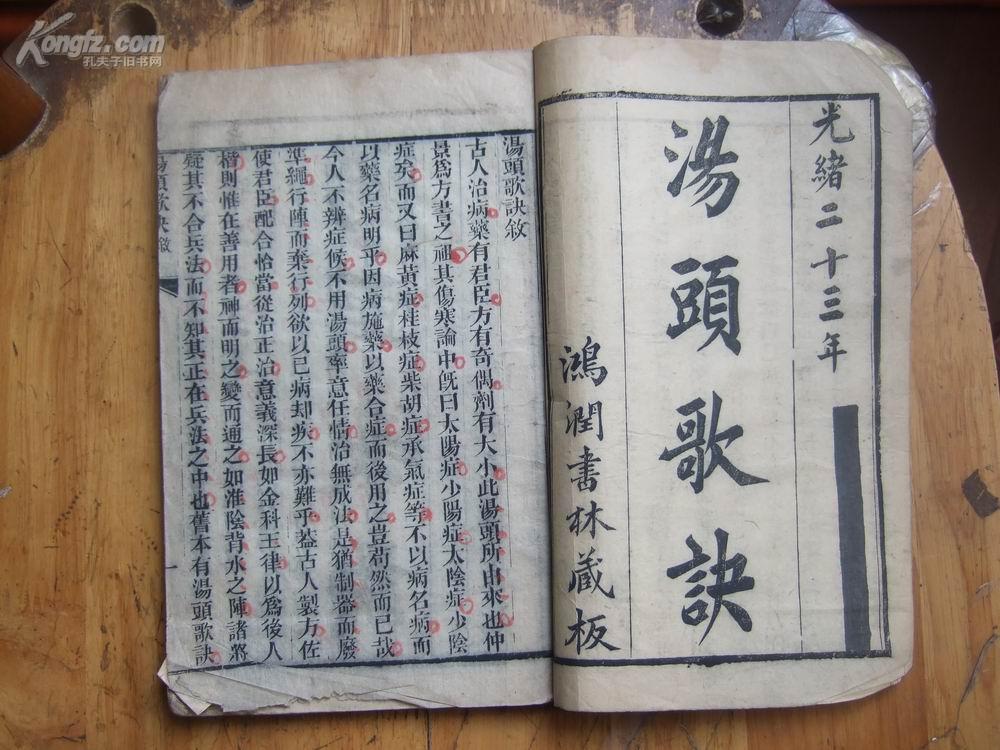 Kongfz.com
孔夫子旧书网
光緒二十三年
湯頭歌訣
鴻潤書林藏板
湯頭歌訣敘
古人治病藥有君臣方有奇偶劑有大小此湯頭所由來也仲
景爲方書之祖其傷寒論中既曰太陽症少陽症太陰症少陰
症矣而又曰麻黃症桂枝症柴胡症承氣症等不以病名病而
以藥名病明乎因病施藥以藥合症而後用之豈苟然而已哉
今人不辨症候不用湯頭率意任情治無成法是猶制器而廢
準繩行陣而棄行列欲以已病却疾不亦難乎葢古人製方佐
使君臣配合恰當從治正治意義深長如金科玉律以爲後人
楷則惟在善用者神而明之變而通之如淮陰背水之陣諸將
疑其不合兵法而不知其正在兵法之中也舊本有湯頭歌訣
湯頭歌訣敘
一